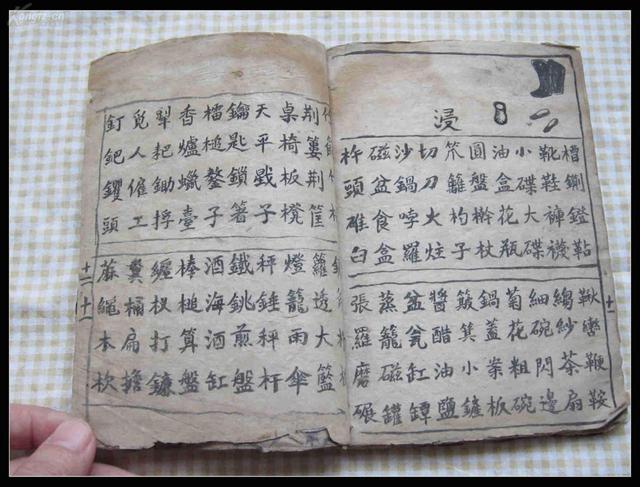 浸
槽鍘
靴鞋褲襪
小碟大碟
油盒花瓶
圓盤擀杖
笊籬杓子
切刀火炷
沙鍋哱羅
磁盆食盒
杵頭碓臼
鞦轡鞭鞍
縐紗茶扇
細碗閃邊
菊花粗碗
鍋蓋案板
簸箕小鏟
醬醋油鹽
盆瓮缸罈
蒸籠磁罐
張羅磨碾
十一
荆簍荆筐
桌椅板櫈
天平戥子
鑰匙鎖箸
檑槌鏊子
香爐蠟臺
犁耙鋤捊
覓人催工
釘鈀钁頭
籮透大籃
燈籠雨傘
秤錘秤杆
鐵銚煎盤
酒海酒缸
棒槌算盤
纏杈打鐮
糞桶扁擔
蔴繩本杴
kongfz.cn